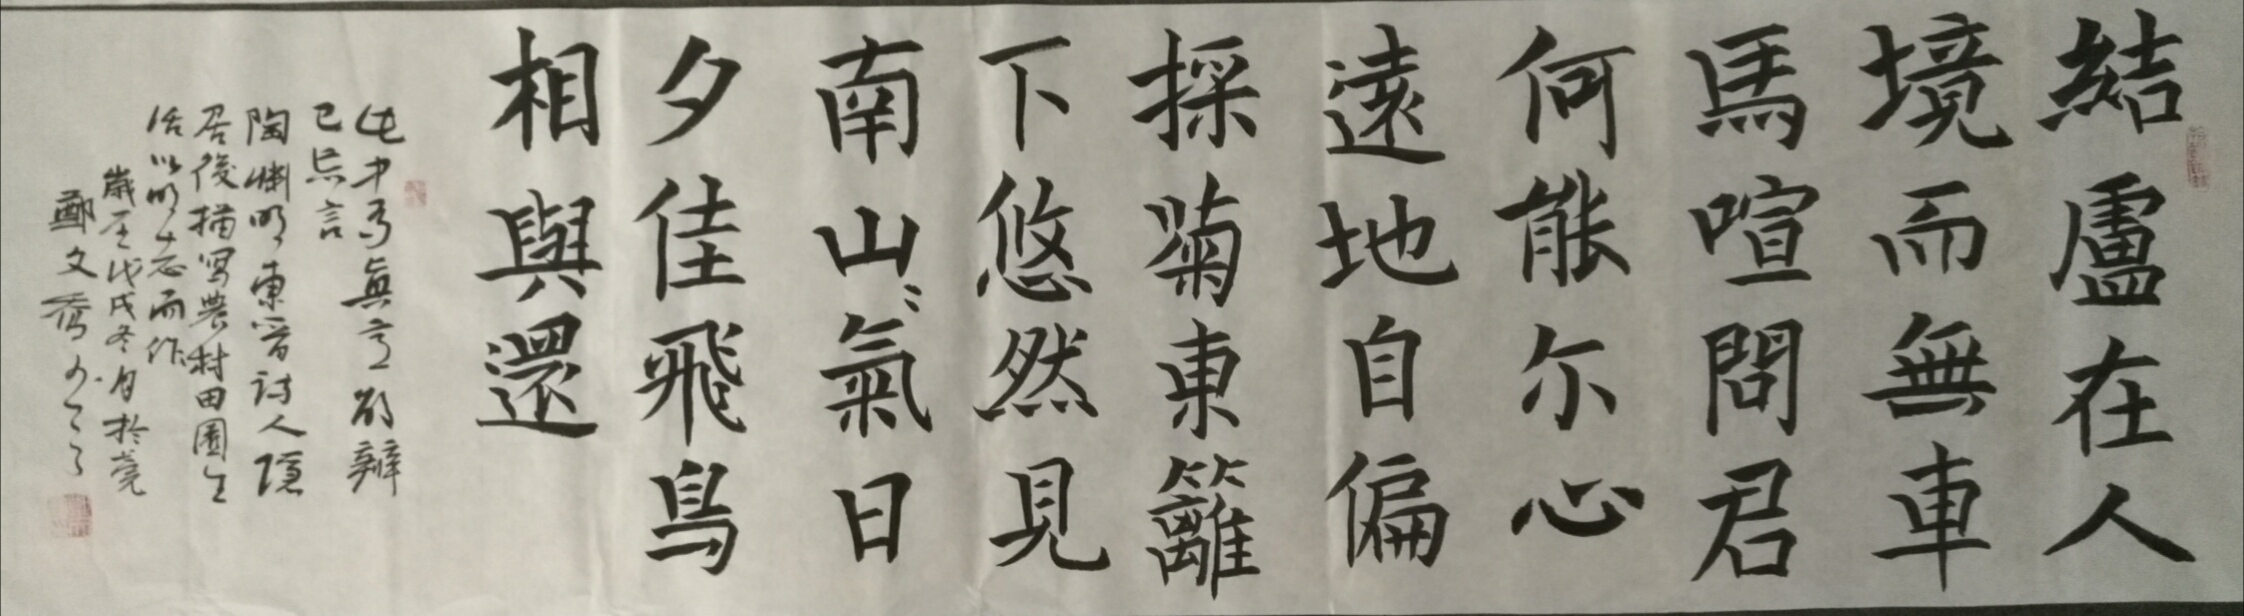 結廬在人
境而無車
馬喧問君
何能尔心
遠地自偏
採菊東籬
下悠然見
南山〻氣日
夕佳飛鳥
相與還
此中有真意欲辯
已忘言
陶渊明東晉詩人隱
居後描写農村田園生
活以明志而作
歲在戊戌冬月於莞
鄭文